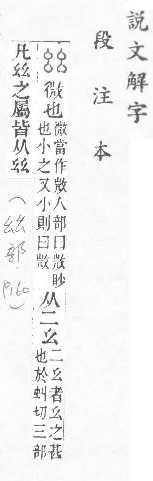 說文解字
段注本
𢆶微也微當作𢼸人部曰𢼸眇也小之又小則曰𢼸从二幺二幺者幺之甚也於虯切三部
凡𢆶之屬皆从𢆶(𢆶部 P160)